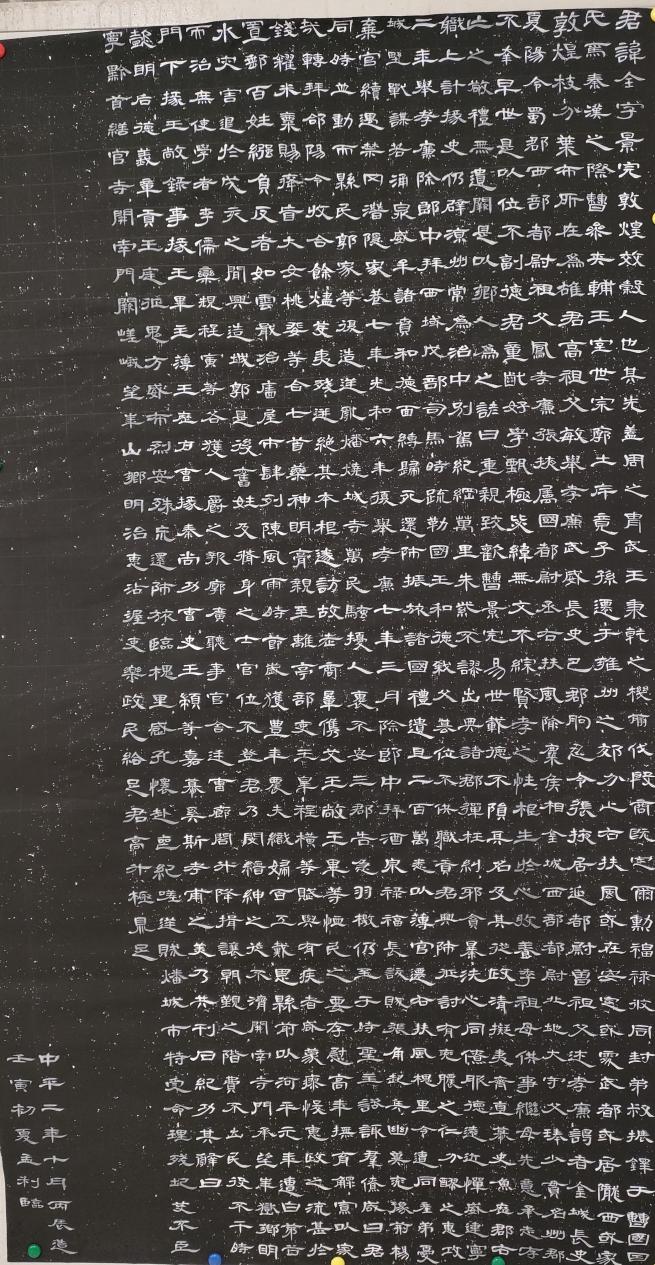 君諱全字景完敦煌效穀人也其先蓋周之胄武王秉乾之機翦伐殷商既定爾勳福祿攸同封弟叔振鐸于曹國因
氏焉秦漢之際曹參夾輔王室世宗廓土斥竟子孫遷于雍州之郊分止右扶風或在安定或處武都或居隴西或家
敦煌枝分葉布所在為雄君高祖父敏舉孝廉武威長史巴郡朐忍令張掖居延都尉曾祖父述孝廉謁者金城長史
夏陽令蜀郡西部都尉祖父鳳孝廉張掖屬國都尉丞右扶風隃麋侯相金城西部都尉北地大守父琫少貫名州郡
不幸早世是以位不副德君童齔好學甄極毖緯無文不綜賢孝之性根生於心收養季祖母供事繼母先意承志存
亡之敬禮無遺闕是以鄉人為之諺曰重親致歡曹景完易世載德不隕其名及其從政清擬夷齊直慕史魚歷郡右
職上計掾史仍辟涼州常為治中別駕紀綱萬里朱紫不謬出典諸郡彈枉糾邪貪暴洗心同僚服德遠近憚威建寧
二年舉孝廉除郎中拜西域戊部司馬時疏勒國王和德弒父篡位不供職貢君興師征討有吮膿之仁分醪之惠攻
城野戰謀若涌泉威牟諸賁和德面縛歸死還師振旅諸國禮遺且二百萬悉以薄官遷右扶風槐里令遭同產弟憂
棄官續遇禁网潛隱家巷七年光和六年復舉孝廉七年三月除郎中拜酒泉祿福長訞賊張角起兵幽冀兗豫荊楊
同時並動而縣民郭家等復造逆亂燔燒城寺萬民騷擾人裹不安三郡告急羽檄仍至于時聖主諮諏群僚咸曰君
哉轉拜郃陽令收合餘燼芟夷殘迸絕其本根遂訪故老商量儁艾王敞王畢等恤民之要存慰高年撫育鰥寡以家
錢糴米粟賜癃盲大女桃婓等合七首藥神明膏親至離亭部吏王皋程橫等賦與有疾者咸蒙瘳悛惠政之流甚於
置郵百姓繈負反者如雲戢治廬屋市肆列陳風雨時節歲獲豐年農夫織婦百工戴恩縣前以河平元年遭白茅谷
水災害退於戊亥之間興造城郭是後舊姓及脩身之士官位不登君乃閔縉紳之徒不濟開南寺門承望華嶽鄉明
而治庶使學者李儒欒規程寅等各獲人爵之報廓廣聽事官舍廷曹廊閤升降揖讓朝覲之階費不出民役不干時
門下掾王敞錄事掾王畢主薄王歷戶曹掾秦尚功曹史王顓等嘉慕奚斯考甫之美乃共刊石紀功其辭曰
懿明后德義章貢王庭征鬼方威布烈安殊巟還師旅臨槐里感孔懷赴喪紀嗟逆賊燔城市特受命理殘圮芟不臣
寧黔首繕官寺開南門闕嵯峨望華山鄉明治惠沾渥吏樂政民給足君高升極鼎足
中平二年十月丙辰造
壬寅初夏孟利臨